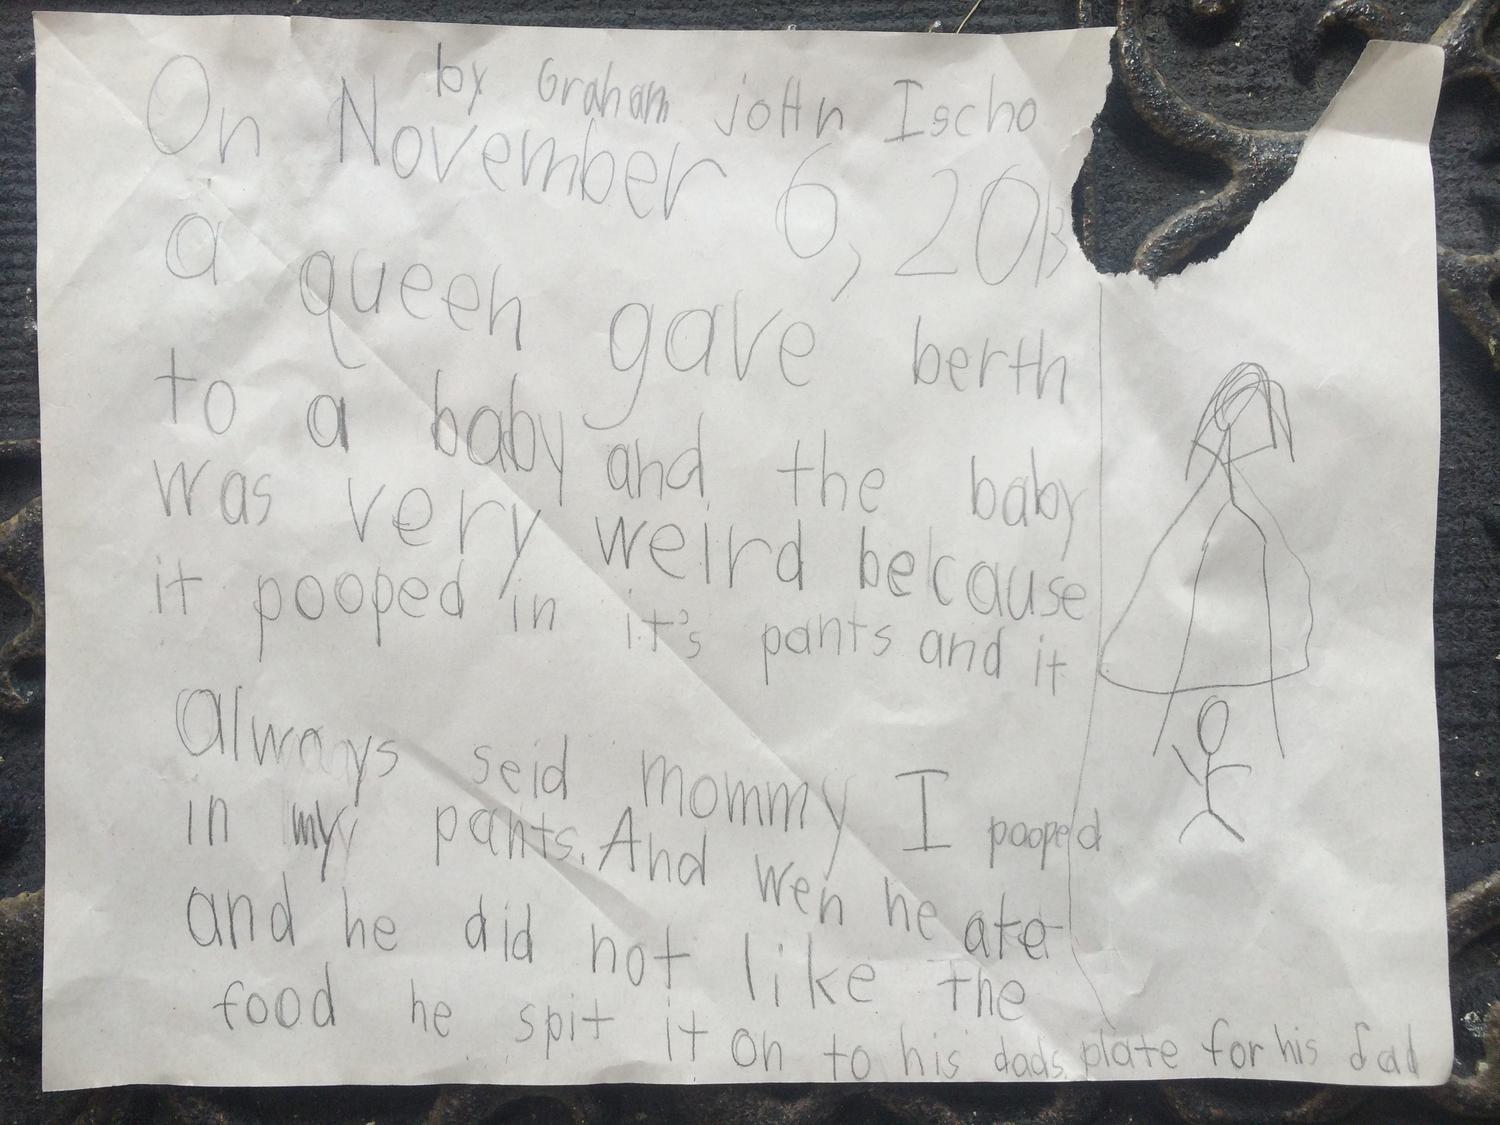 by Graham john Ischo
On November 6, 2013
a queen gave berth
to a baby and the baby
was very weird because
it pooped in it's pants and it
always seid mommy I pooped
in my pants. And wen he ate
and he did not like the
food he spit it on to his dads plate for his dad